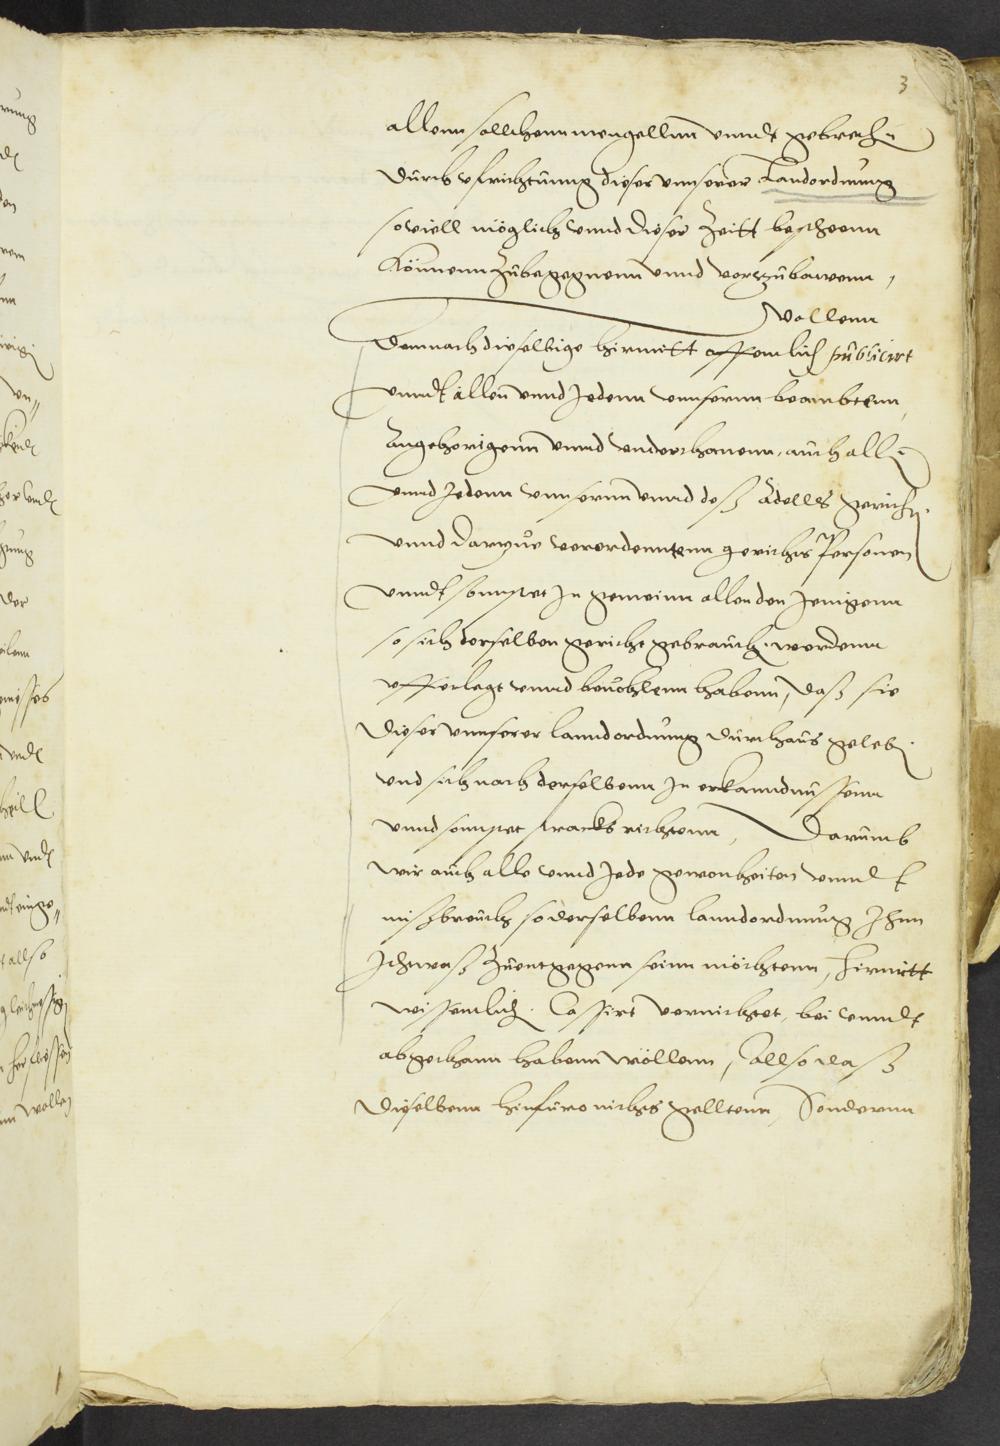 3
allenn sollchenn mengellnn vnndt gebrech̄
durch vfrichtunng dieser vnnserer Landordnung
soviell möglich vnnd dieser Zeitt beschenn
Könnenn Zubegegnenn vnnd vorzubawenn,
Wollenn
demnach dieselbige hirmitt offenlich publicirt
vnndt allen vnnd Jedenn vnnsernn beambtenn,
Angehorigenn vnnd vnderthanenn, auch all̄
vnnd Jedenn vnnsernn vnnd deß Adells gericht
vnnd darzue verordenntenn gerichts Personen
vnndt sonnstet Jn gemeinn allen den Jenigenn
so sich derselben gericht gebrauch. werdenn
vfferlegt vnnd beuohlenn habenn, daß sie
dieser vnnserer lanndordnung durchaus geleb.
vnd sich nach derselbenn Jn erkanndnussenn
vnnd sonnstet stracks richtenn, Darumb
wir auch alle vnnd Jede gewonheiten vnndt
mißbreuch so derselbenn lanndordnung Jhnn
Ichtwaß Zuentgegenn seinn möchtenn, hirmitt
wissentlich. Cassirt vernichtet, bei vnndt
abgethann habenn wöllenn, also daß
dieselbenn hinfuro nichts gelltenn, Sondernn